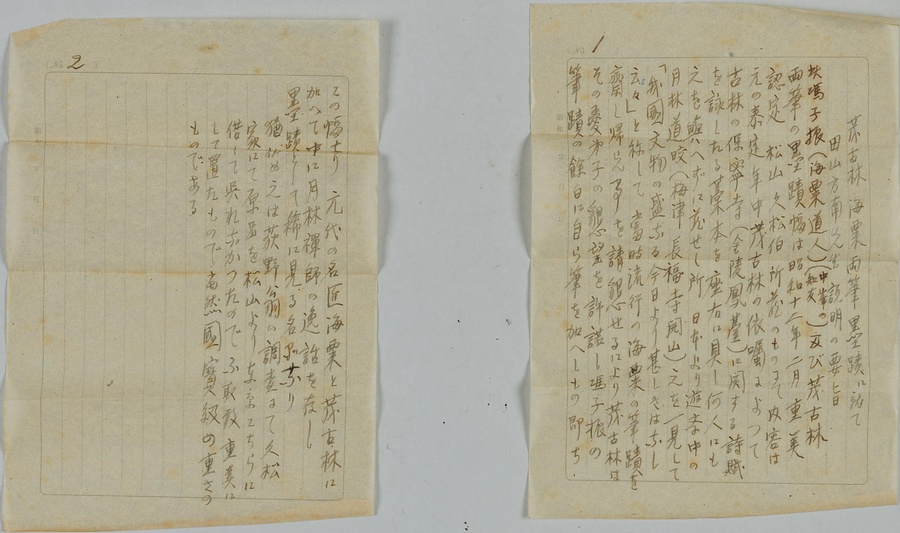 1
茂古林 海粟 両筆墨蹟に就て
田山方南先生説明の要旨
馮子振(海粟道人)(中華の)及び茂古林
両筆の墨蹟幅は昭和十二年二月重美
認定 松山久松伯所蔵のものにて内容は
元の泰定年中茂古林の依嘱によつて
古林の保寧寺(金陵鳳臺)に関する詩賦
を詠したる草本を座右に具し何人にも
之を與へずに蔵せし所 日本より遊学中の
月林道皎(梅津 長福寺開山)之を一見して
「我國文物の盛なる今日より甚しきはなし
云々」と称して 当時流行の海粟の筆蹟を
齎し帰らん事を請懇せるにより茂古林は
その愛弟子の懇望を許諾し馮子振の
筆蹟の餘白に自ら筆を加へしもの即ち
2
この幅なり 元代の名匠海粟と茂古林に
加へて中に月林禅師の逸話を存し
墨蹟として稀に見る名品なり
猶 之は荻野翁の調査にて久松
家にて原品を松山より こちらに
借して呉れなかつたので 不取敢重美に
して置たもので 当然國寶級の重さの
ものである